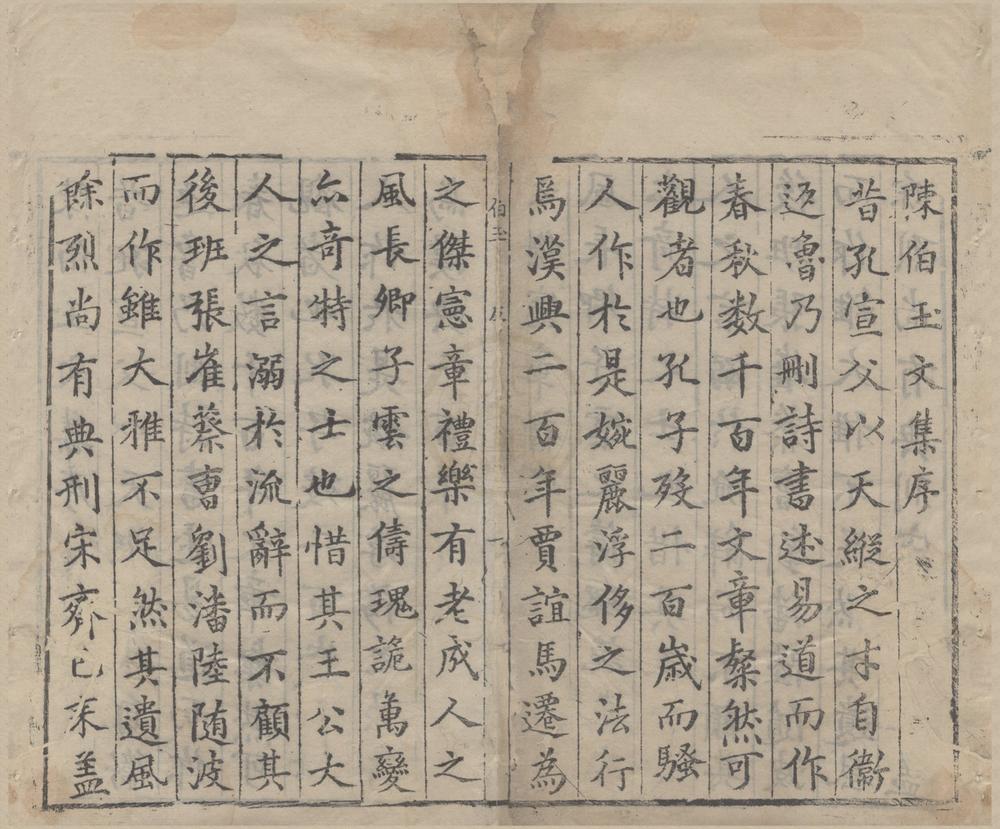 陳伯玉文集序
昔孔宣父以天縱之才自衞
返魯乃刪詩書述易道而作
春秋数千百年文章粲然可
觀者也孔子殁二百歲而騷
人作於是婉麗浮侈之法行
焉漢興二百年賈誼馬遷為
伯玉 序 一
之傑憲章禮樂有老成人之
風長卿子雲之儔瑰詭萬變
亦奇特之士也惜其王公大
人之言溺於流辭而不顧其
後班張崔蔡曹劉潘陸随波
而作雖大雅不足然其遺風
餘烈尚有典刑宋齊已来盖